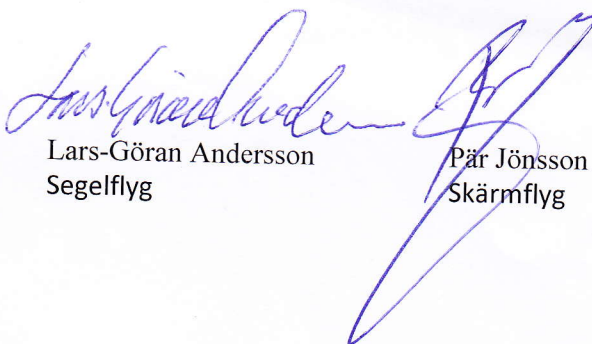 Lars-Göran Andersson
Lars-Göran Andersson
Segelflyg
Pär Jönsson
Skärmflyg